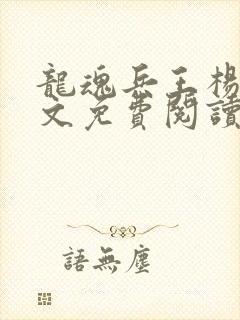 龍魂兵王楊
文免費閱讀
語無塵